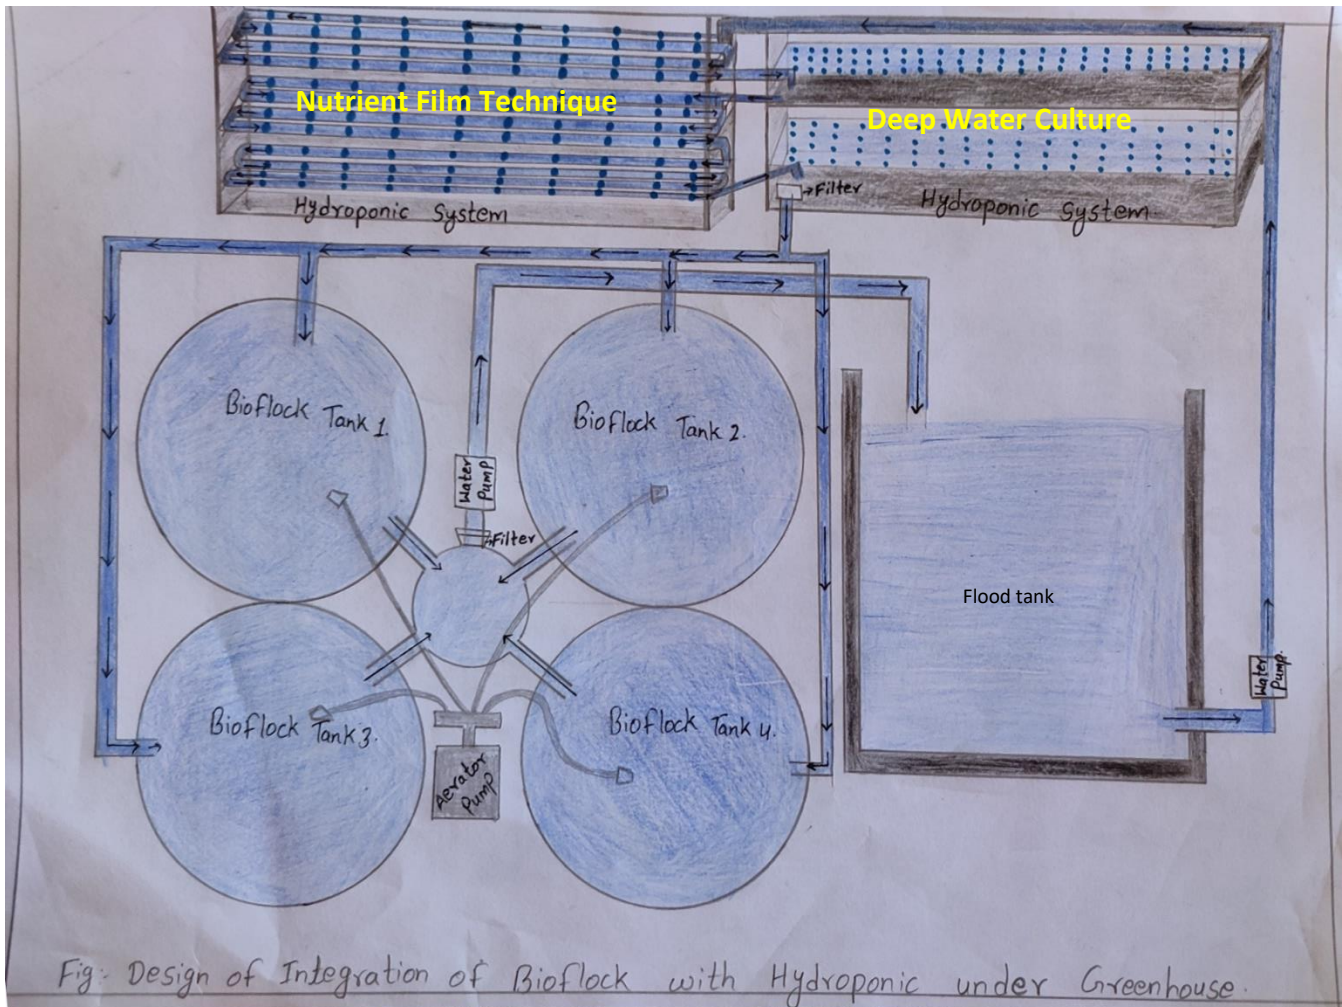 Nutrient Film Technique
Deep Water Culture
Hydroponic System
Filter
Hydroponic System
Bioflock Tank 1.
Bioflock Tank 2.
Water
Pump
Filter
Flood tank
Water
Pump.
Bioflock
Tank 3.
Bioflock Tank 4.
Aerator
Pump
Fig:- Design of Integration of Bioflock with Hydroponic under Greenhouse.